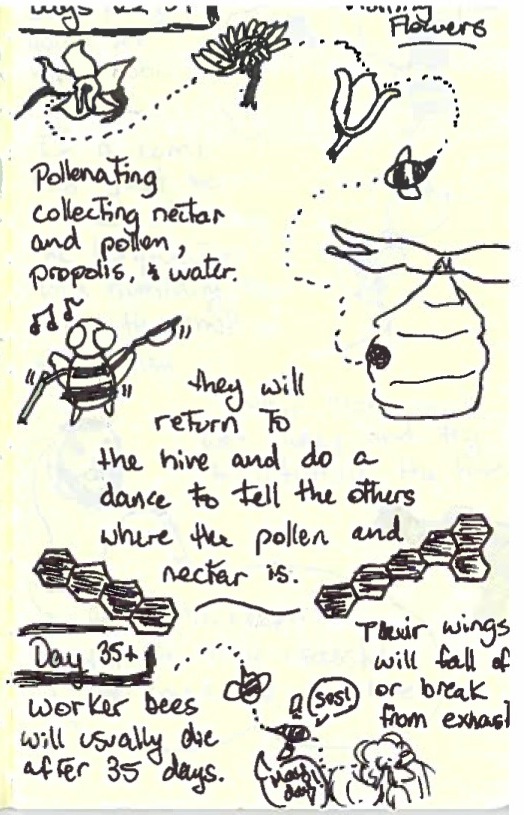 Days
Flowers
Pollenating
collecting nectar
and pollen,
propolis, & water.
they will
return to
the hive and do a
dance to tell the others
where the pollen and
nectar is.
Day 35+
worker bees
will usually die
after 35 days.
SOS!
May
day!
Their wings
will fall of
or break
from